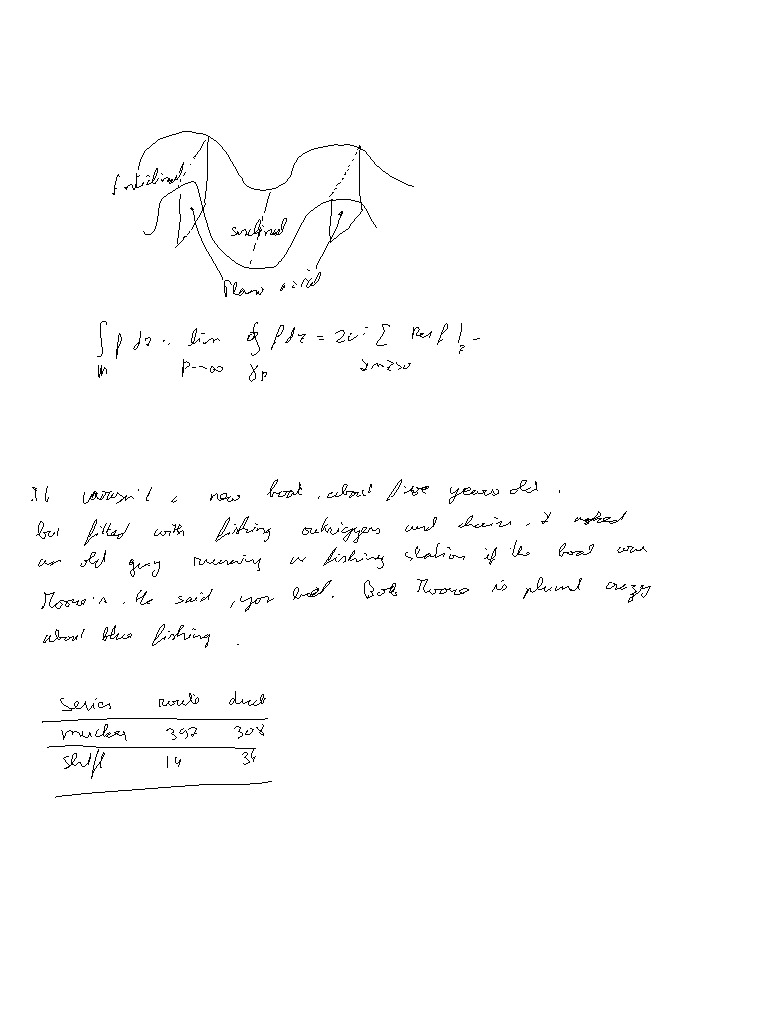 Anticlinal
sinclinal
Plano axial
∫ f dz = lim ∮ f dz = 2πi ∑ Res f |z
ρ→∞ γρ Im z>0
It wasn't a new boat, about five years old,
but fitted with fishing outriggers and chairs. I asked
an old guy running a fishing station if the boat was
Moore's. He said, you bet. Bob Moore is plumb crazy
about blue fishing.
series route duct
397 308
shift 14 34